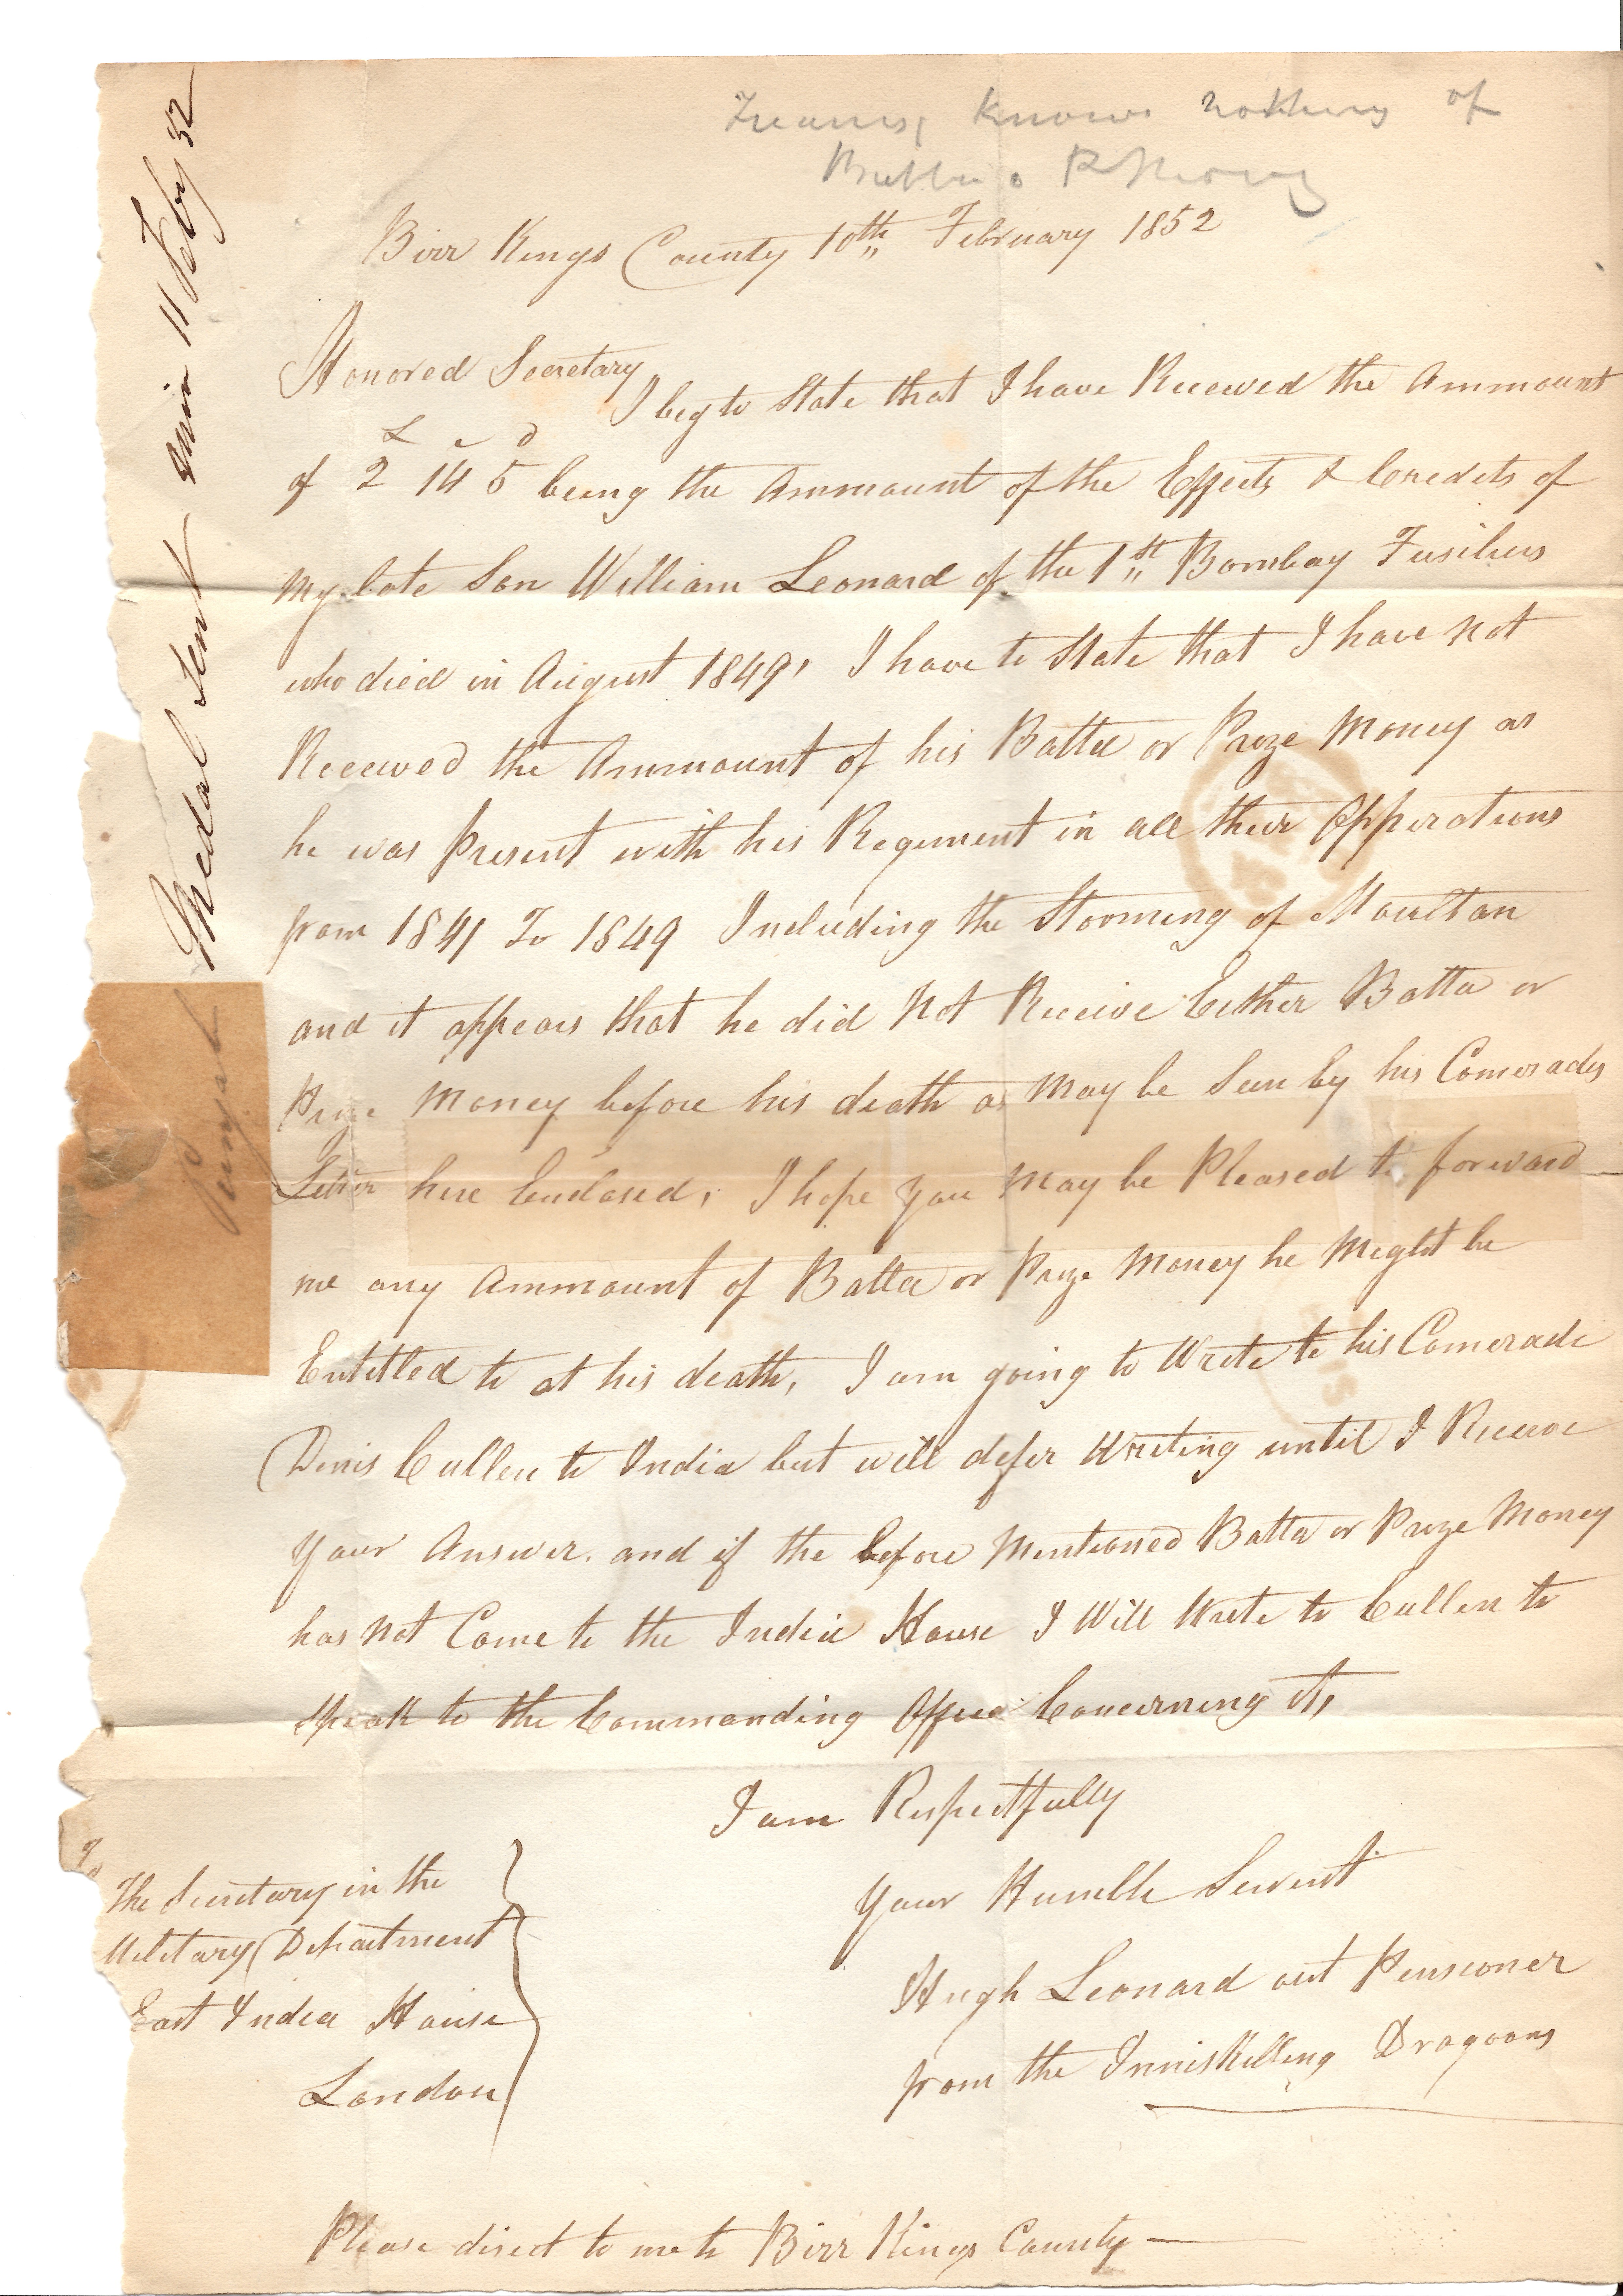 knows nothing of
Batta or P Money
Birr Kings County 10th February 1852
Honored Secretary
I beg to State that I have Received the Ammount
£ s d
of 2 14 5 being the Ammount of the Effects & Credits of
my late Son William Leonard of the 1st Bombay Fusiliers
who died in August 1849, I have to State that I have not
Received the Ammount of his Batta or Prize Money as
he was Present with his Regiment in all their Opperations
from 1841 To 1849 Including the Storming of Moultan
and it appears that he did Not Receive Either Batta or
Prize Money before his death as May be Seen by his Comerades
Letter here Enclosed, I hope you May be Pleased to forward
me any Ammount of Batta or Prize Money he Might be
Entitled to at his death, I am going to Write to his Comerade
Denis Cullen to India but will defer Writing until I Receive
your Answer. and if the before Mentioned Batta or Prize Money
has Not Come to the India House I Will Write to Cullen to
Speak to the Commanding Officer Concerning it,
I am Respectfully
Your Humble Servent
Hugh Leonard out Pensioner
from the Inniskilling Dragoons
To
The Secretary in the
Military Department
East India House
London
Please direct to me to Birr Kings County
Medal Sent 11 Feby 52
Punjab